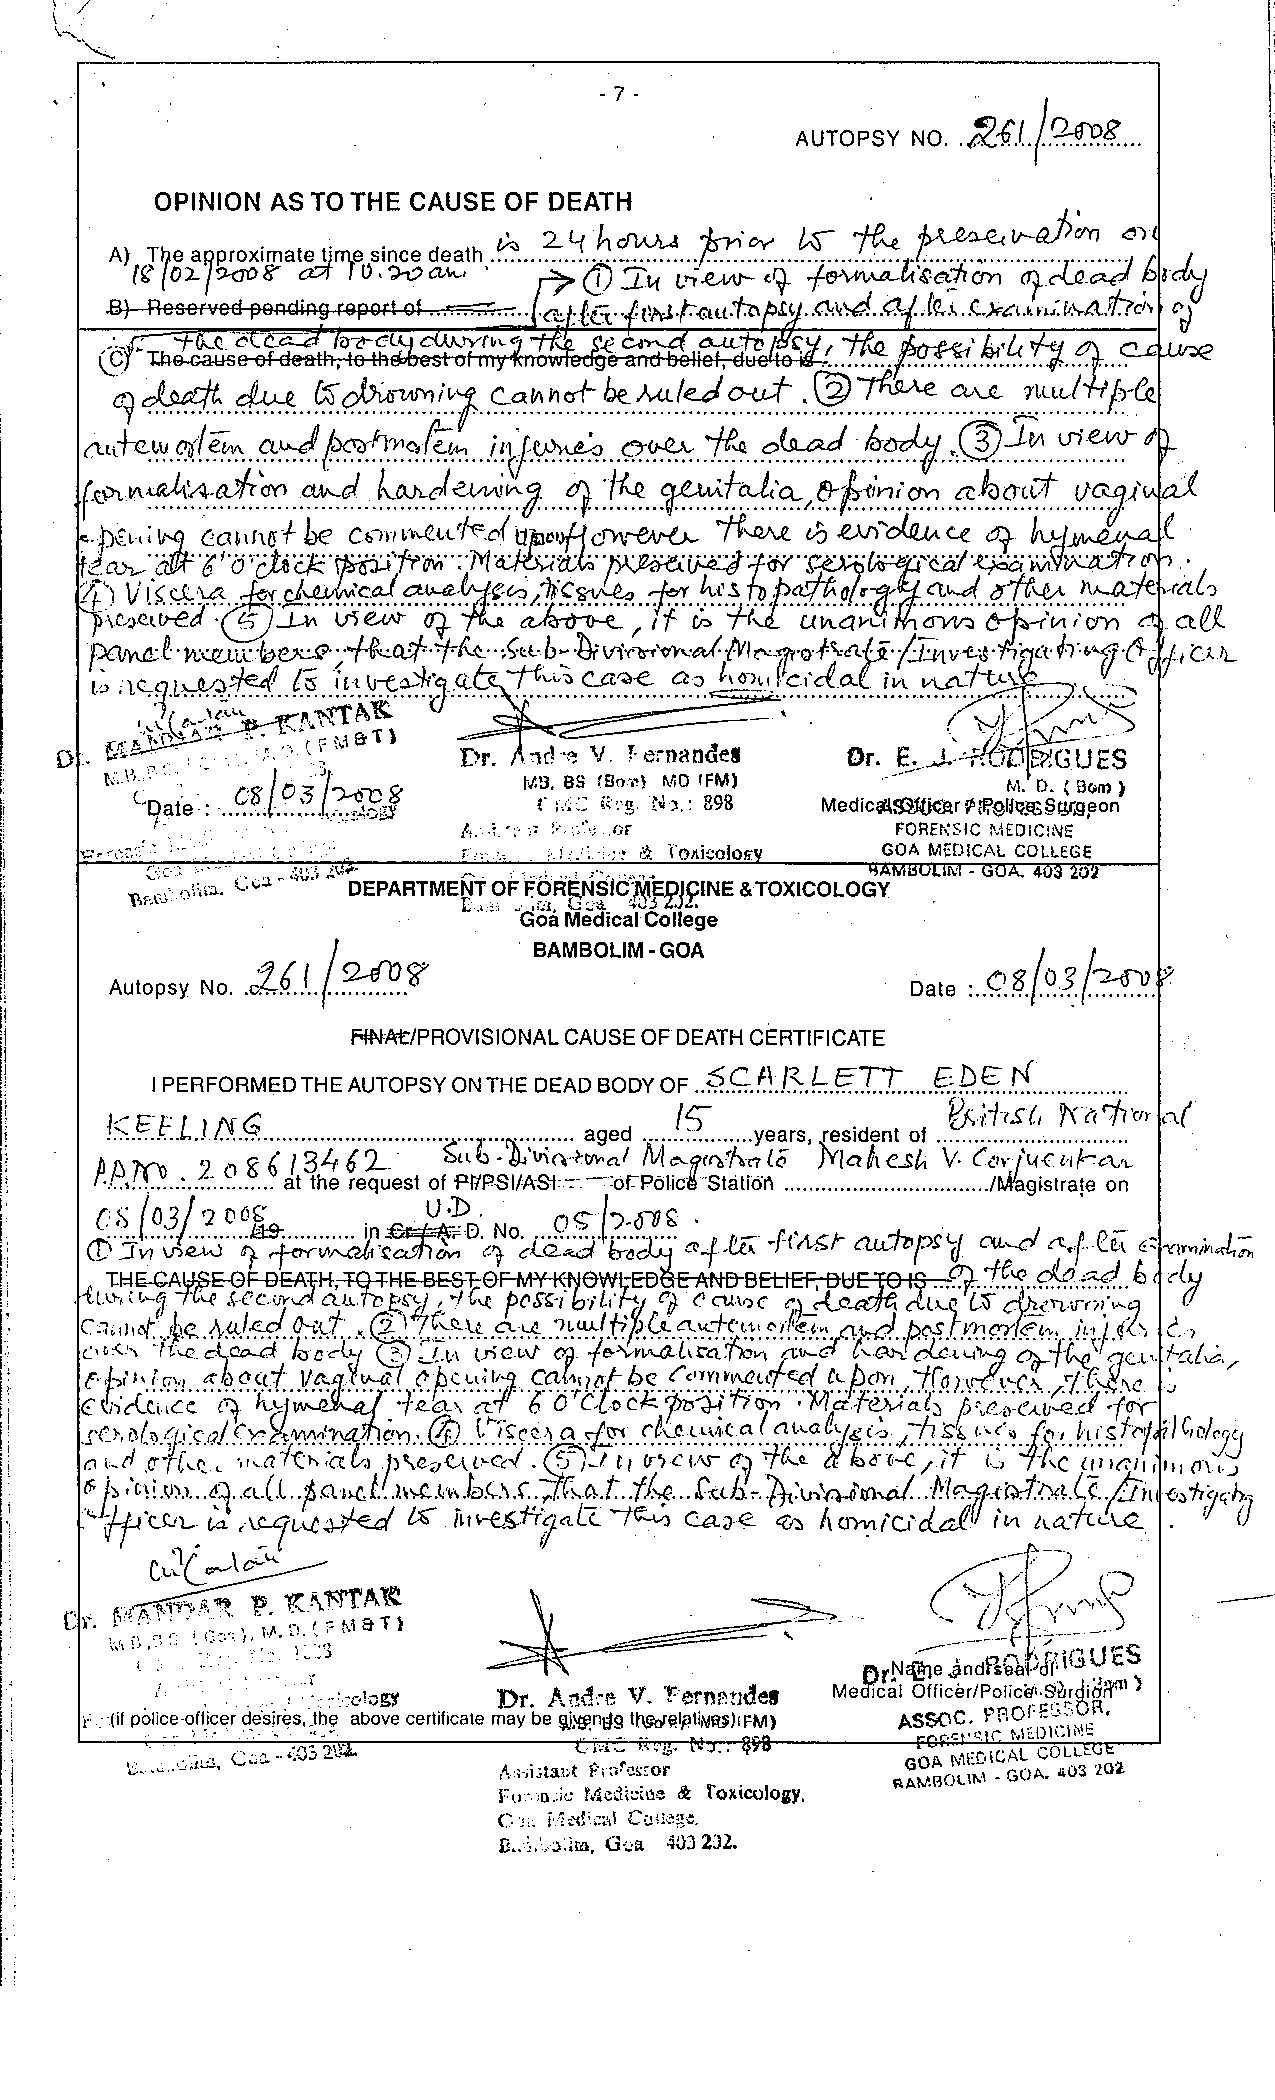 - 7 -
AUTOPSY NO. 261/2008
OPINION AS TO THE CAUSE OF DEATH
A) The approximate time since death is 24 hours prior to the preservation on
18/02/2008 at 10.20am.
① In view of formalisation of dead body
B) Reserved pending report of after first autopsy and after examination of
the dead body during the second autopsy, the possibility of cause
C) The cause of death, to the best of my knowledge and belief, due to is
of death due to drowning cannot be ruled out. ② There are multiple
antemortem and postmortem injuries over the dead body. ③ In view of
formalisation and hardening of the genitalia, opinion about vaginal
opening cannot be commented upon. However there is evidence of hymenal
tear at 6 O'clock position. Materials preserved for serological examination.
④ Viscera for chemical analysis, tissues for histopathology and other materials
preserved. ⑤ In view of the above, it is the unanimous opinion of all
panel members, that the Sub-Divisional Magistrate/Investigating Officer
is requested to investigate this case as homicidal in nature
Dr. MANDAR P. KANTAK
(FM&T)
Date : 08/03/2008
Bambolim, Goa - 403 202
Dr. Andre V. Fernandes
MB, BS (Bom) MD (FM)
GMC Reg. No.: 898
Assistant Professor
Forensic Medicine & Toxicology
Goa 403 202.
Dr. E. J. RODRIGUES
M. D. (Bom)
Medical Officer / Police Surgeon
FORENSIC MEDICINE
GOA MEDICAL COLLEGE
BAMBOLIM - GOA. 403 202
DEPARTMENT OF FORENSIC MEDICINE & TOXICOLOGY
Goa Medical College
BAMBOLIM - GOA
Autopsy No. 261/2008 Date : 08/03/2008
FINAL/PROVISIONAL CAUSE OF DEATH CERTIFICATE
I PERFORMED THE AUTOPSY ON THE DEAD BODY OF SCARLETT EDEN
KEELING aged 15 years, resident of British National
PP.No. 208613462 at the request of PI/PSI/ASI of Police Station Sub-Divisional Magistrate Mahesh V. Corjuenkar /Magistrate on
08/03/2008 19 in Cr./A. U.D. D. No. 05/2008.
① In view of formalisation of dead body after first autopsy and after examination
THE CAUSE OF DEATH, TO THE BEST OF MY KNOWLEDGE AND BELIEF, DUE TO IS of the dead body
during the second autopsy, the possibility of cause of death due to drowning
cannot be ruled out. ② There are multiple antemortem and postmortem injuries
over the dead body ③ In view of formalisation and hardening of the genitalia,
opinion about vaginal opening cannot be commented upon, However, there is
evidence of hymenal tear at 6 O'Clock position. Materials preserved for
serological examination. ④ Viscera for chemical analysis, tissues for histopathology
and other materials preserved. ⑤ In view of the above, it is the unanimous
opinion of all panel members, that the Sub-Divisional Magistrate/Investigating
Officer is requested to investigate this case as homicidal in nature.
Dr. MANDAR P. KANTAK
M.B.,B.S. (Goa), M.D. (FM&T)
Dr. Andre V. Fernandes
Dr. E. J. RODRIGUES
Name and Seal of
Medical Officer/Police Surgion
(if police officer desires, the above certificate may be given to the relatives)
ASSOC. PROFESSOR,
FORENSIC MEDICINE
GOA MEDICAL COLLEGE
BAMBOLIM - GOA. 403 202
Goa - 403 202.
GMC Reg. No.: 898
Assistant Professor
Forensic Medicine & Toxicology,
Goa Medical College,
Bambolim, Goa 403 202.